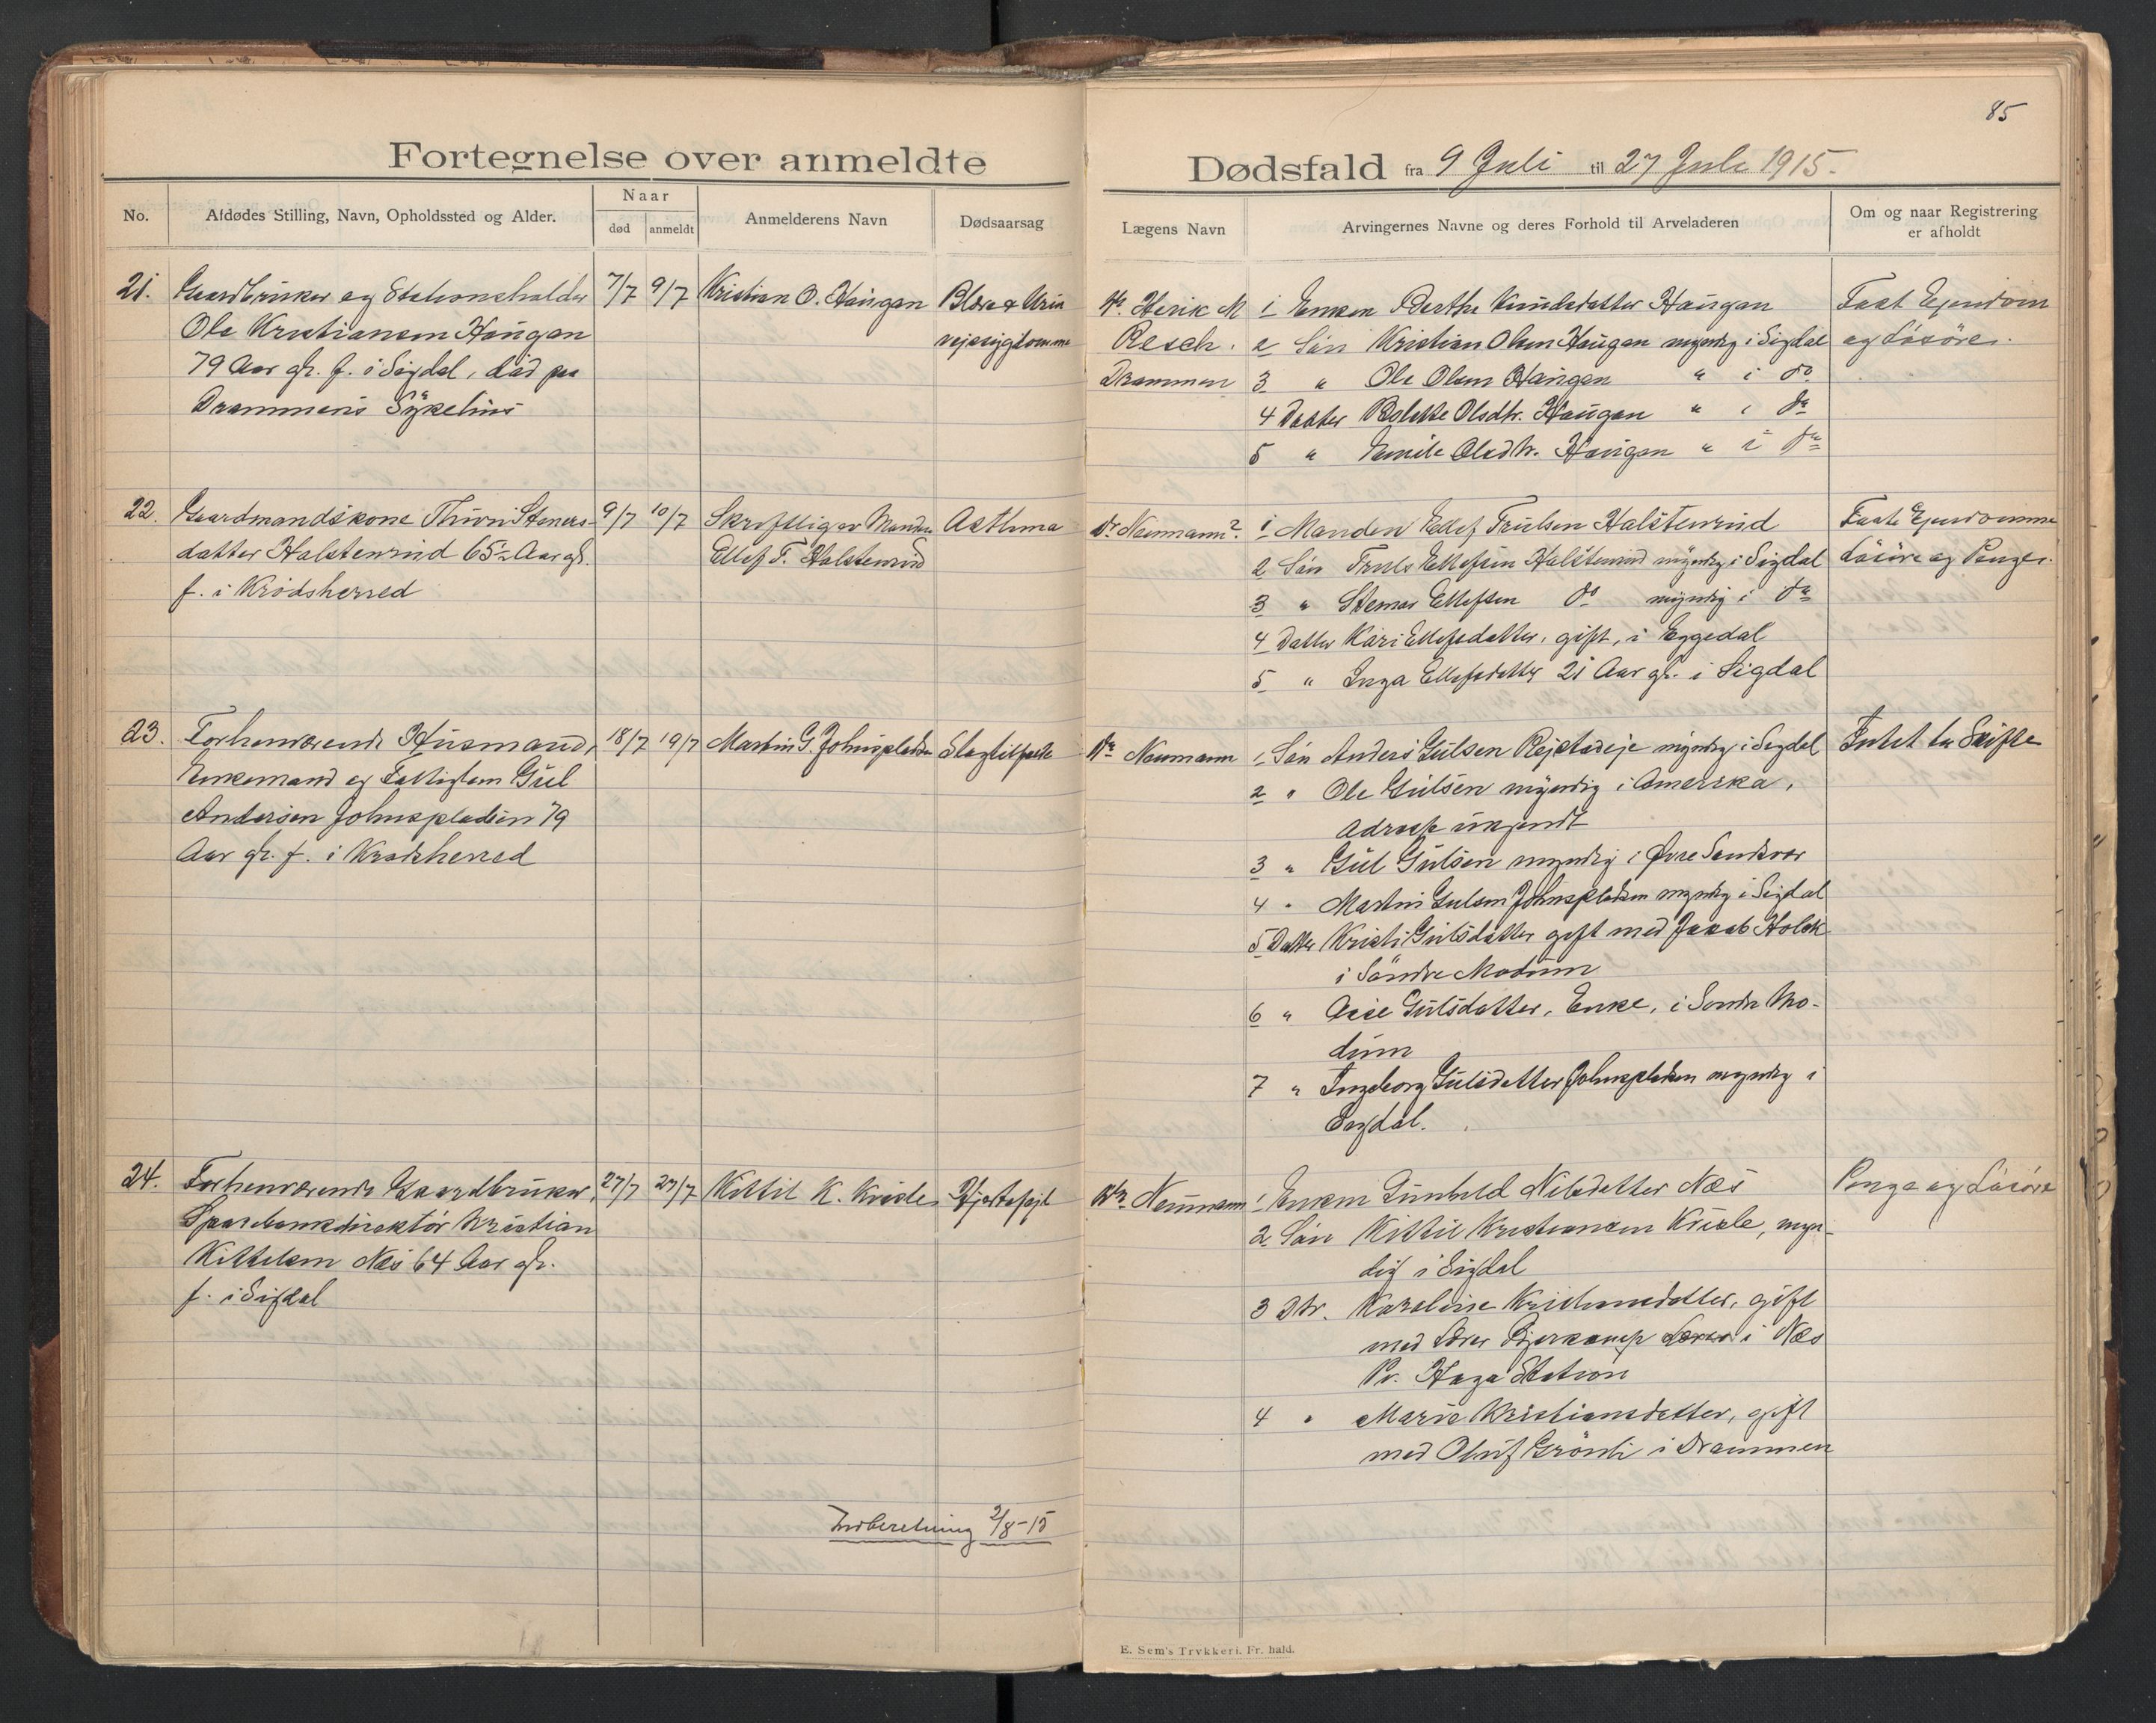 85
Fortegnelse over anmeldte
Dødsfald fra 9 Juli til 27 Juli 1915.
No.
Afdødes Stilling, Navn, Opholdssted og Alder.
Naar
død
anmeldt
Anmelderens Navn
Dødsaarsag
Lægens Navn
Arvingernes Navne og deres Forhold til Arveladeren
Om og naar Registrering
er afholdt
21. Gaardbruker og Stationsholder 7/7 9/7 Kristian O. Haugan Blære & Urin
Ole Kristiansen Haugan vejssygdomme
79 Aar gl. f. i Sigdal, död paa
Drammens Sykehus
Henrik M
Resch.
Drammen
1 Enken Berthe Knudsdatter Haugan
2 Sön Kristian Olsen Haugan myndig i Sigdal
3 " Ole Olsen Haugan " i do
4 Datter Bolette Olsdtr. Haugan " i do
5 " Emile Olsdtr. Haugan " i do
Fast Ejendom
og Lösöre.
22. Gaardmandskone Thuri Steners- 9/7 10/7 Skriftlig av Manden Asthma
datter Halstenrud 65½ Aar gl. Ellef T. Halstenrud
f. i Krödsherred
Dr Neumann?
1 Manden Ellef Trulsen Halstenrud
2 Sön Truls Ellefsen Halstenrud myndig i Sigdal
3 " Stener Ellefsen do myndig i do
4 Datter Kari Ellefsdatter, gift, i Eggedal
5 " Inga Ellefsdatter 21 Aar gl. i Sigdal
Faste Ejendomme
Lösöre og Penger.
23. Forhenværende Husmand, 18/7 19/7 Martin G. Johnspladsen Slagtilfælde
Enkemand og Fattiglem Gul
Andersen Johnspladsen 79
Aar gl. f. i Krödsherred
Dr Neumann
1 Sön Anders Gulsen myndig i Sigdal
2 " Ole Gulsen myndig i Amerika,
Adresse ukjendt
3 " Gul Gulsen myndig i Øvre Sandsvær
4 " Martin Gulsen Johnspladsen myndig i Sigdal
5 Datter Kristi Gulsdatter gift med Jakob Holek
i Söndre Modum
6 " Aase Gulsdatter, Enke, i Söndre Mo-
dum
7 " Ingeborg Gulsdatter Johnspladsen myndig i
Sigdal.
Intet til Skifte
24. Forhenværende Gaardbruker, 27/7 27/7 Kittil K. Kvisle Hjertefejl
Sparebankdirektör Kristian
Kittelsen Næs 64 Aar gl.
f. i Sigdal
Dr Neumann
1 Enken Gunhild Nilsdatter Næs
2 Sön Kittil Kristiansen Kvisle, myn-
dig i Sigdal
3 Dtr. Karoline Kristiansdatter, gift
med Lærer Bjerkamp Lærer i Næs
Pr. Haga Station
4 " Marie Kristiansdatter, gift
med Oluf Grönli i Drammen
Penge og Lösöre
Indberetning 2/8-15
E. Sem's Trykkeri. Fr. hald.